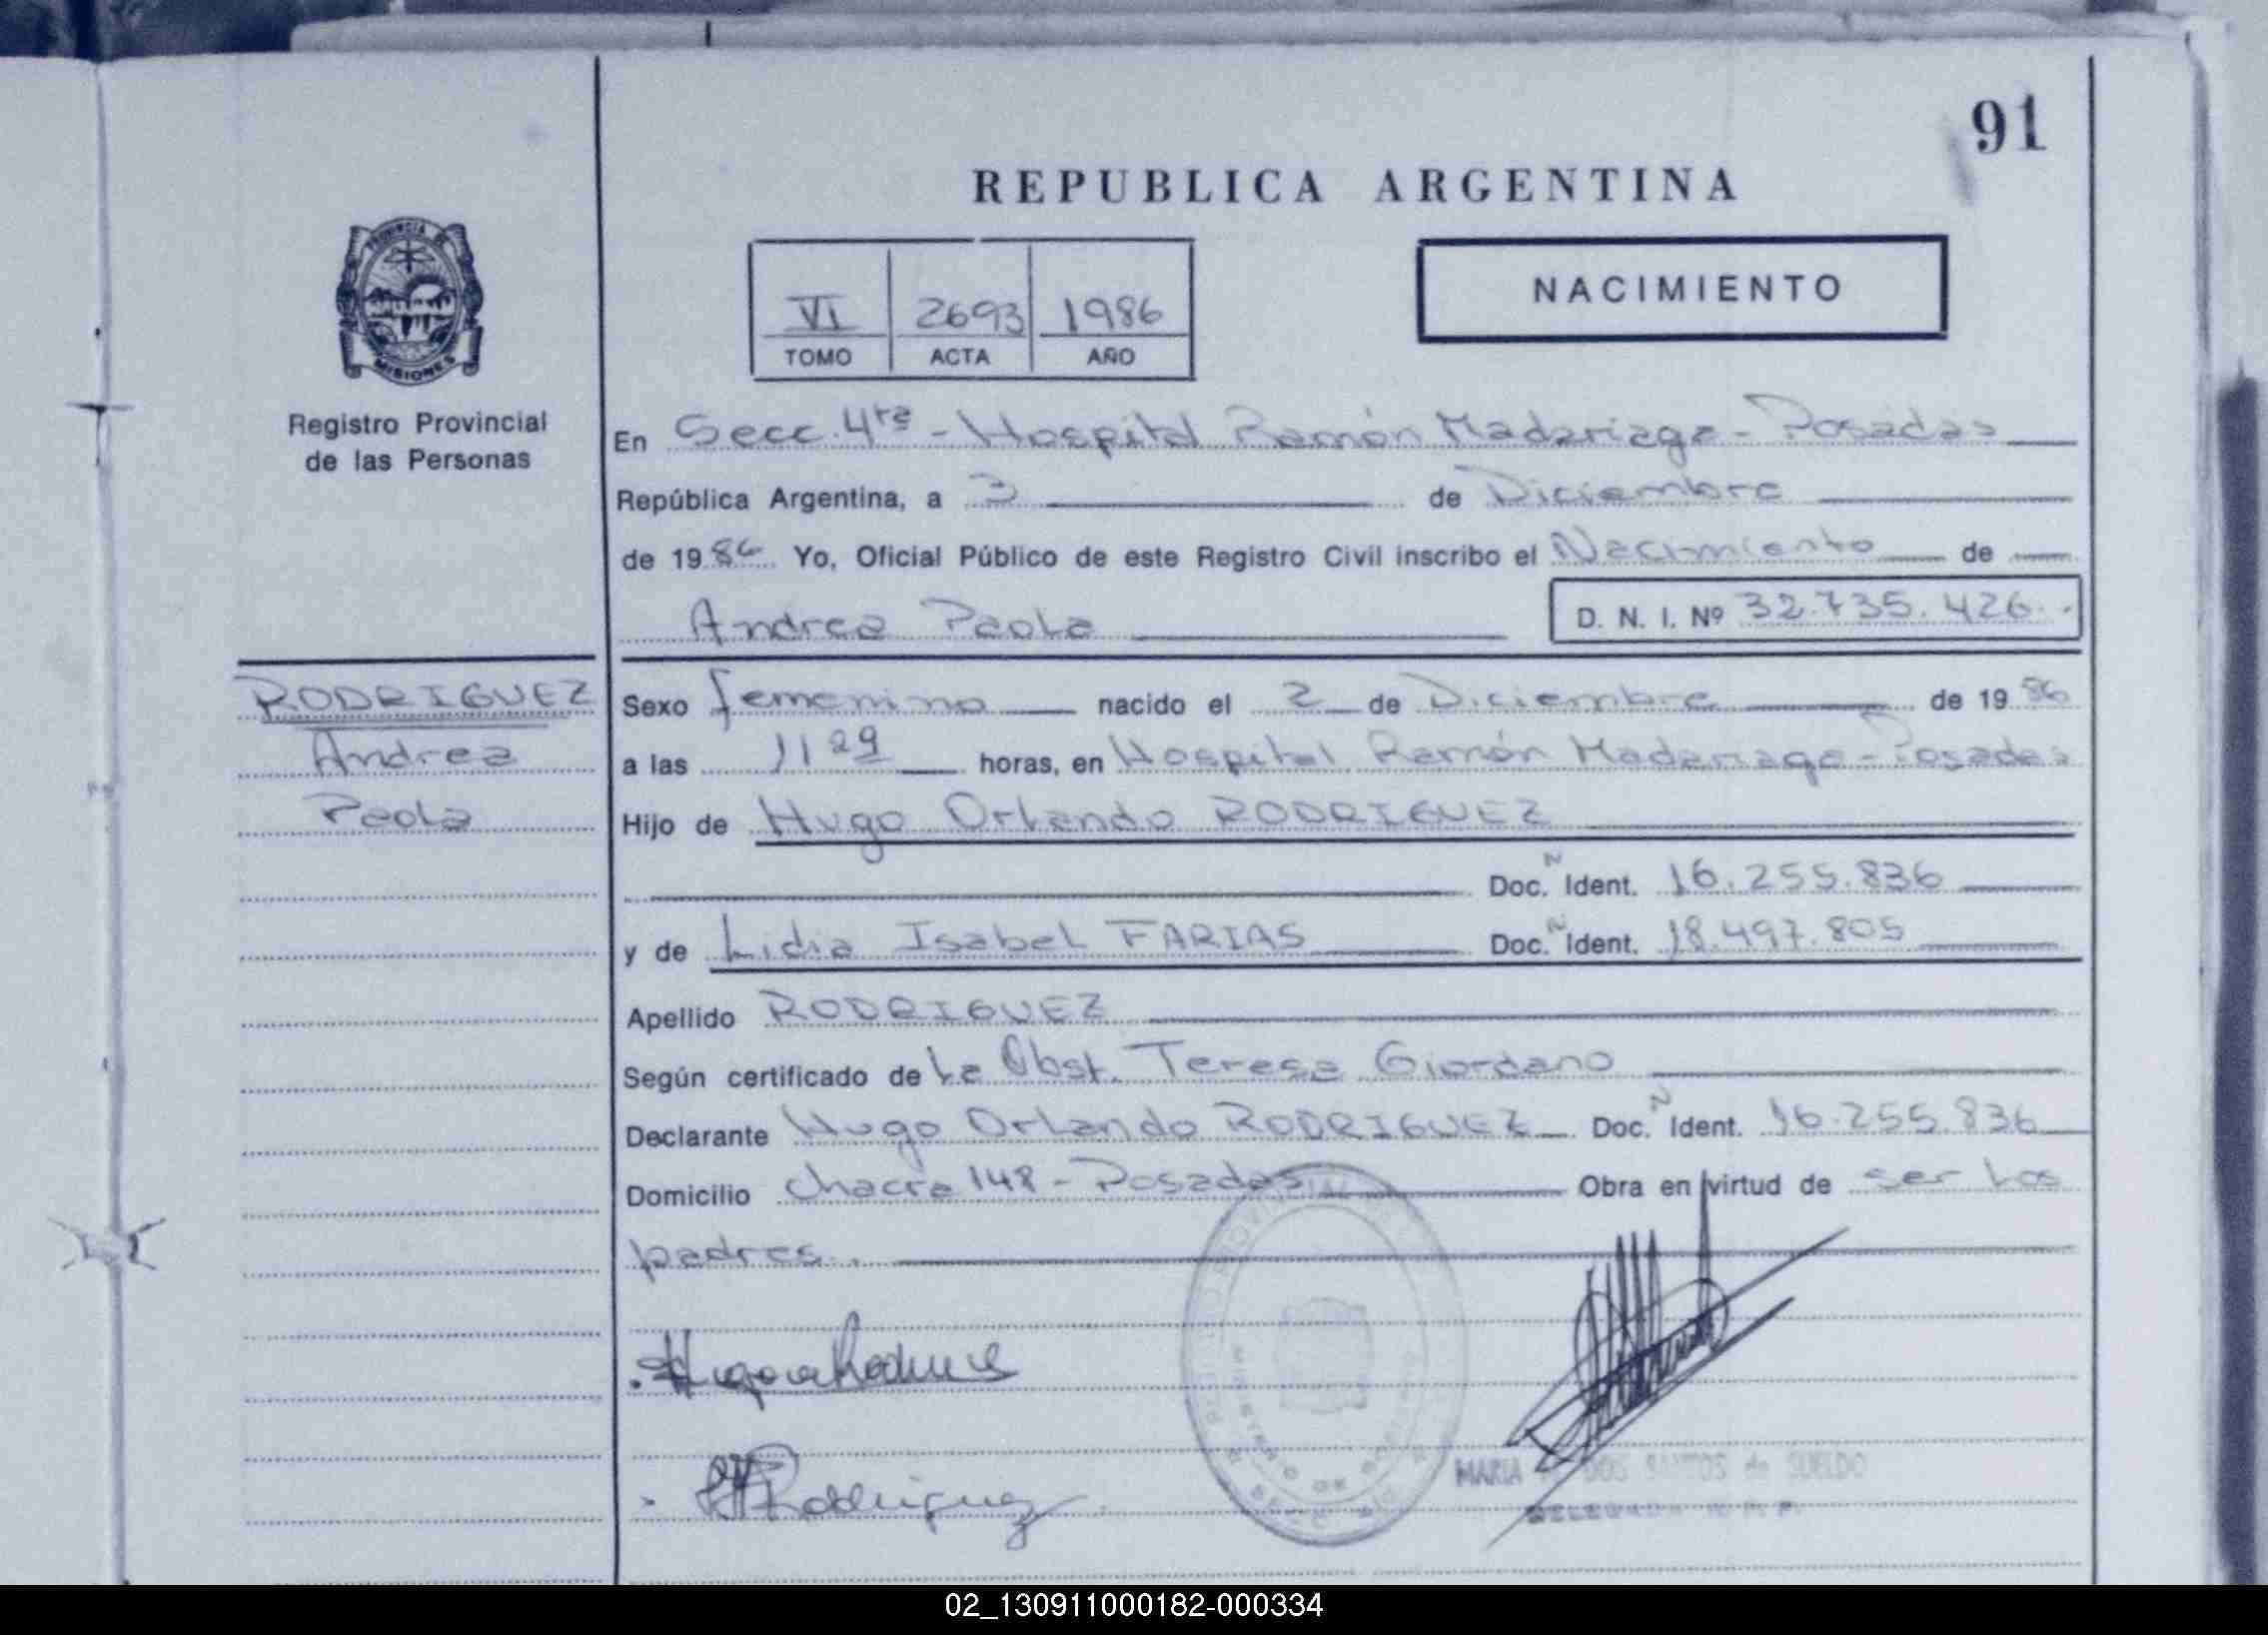 91
REPUBLICA ARGENTINA
PROVINCIA DE
MISIONES
Registro Provincial
de las Personas
VI 2693 1986
TOMO ACTA AÑO
NACIMIENTO
En Secc. 4ta - Hospital Ramón Madariaga - Posadas
República Argentina, a 3 de Diciembre
de 1986 Yo, Oficial Público de este Registro Civil inscribo el Nacimiento de
Andrea Paola D. N. I. Nº 32.735.426.
RODRIGUEZ
Andrea
Paola
Sexo femenino nacido el 2 de Diciembre de 1986
a las 11 29 horas, en Hospital Ramón Madariaga - Posadas
Hijo de Hugo Orlando RODRIGUEZ
Doc. N Ident. 16.255.836
y de Lidia Isabel FARIAS Doc. N Ident. 18.497.805
Apellido RODRIGUEZ
Según certificado de La Obst. Teresa Giordano
Declarante Hugo Orlando RODRIGUEZ Doc. N Ident. 16.255.836
Domicilio Chacra 148 - Posadas Obra en virtud de ser los
padres.
Rodriguez
MARIA DOS SANTOS de SUELDO
02_130911000182-000334